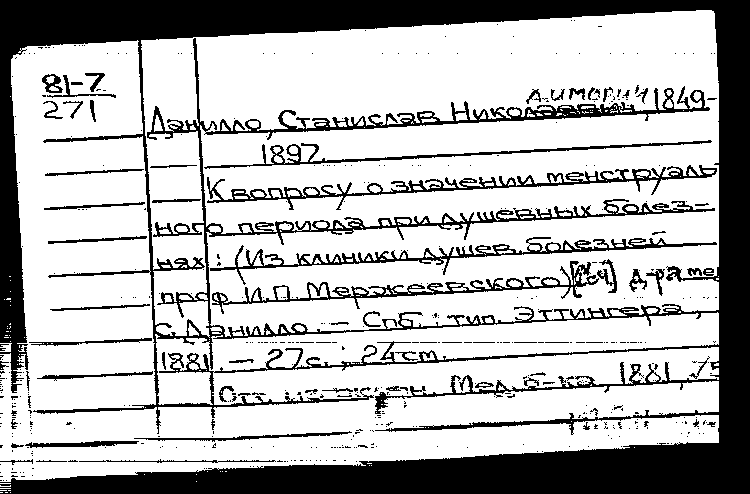 81-7
271
Данилло, Станислав Николаевич, 1849-
1897.
К вопросу о значении менструаль
ного периода при душевных болез-
нях : (Из клиники душев. болезней
проф И.П. Мержеевского) д-ра ме
С. Данилло. — Спб. : тип. Эттингера,
1881. — 27 с. ; 24 см.
Отт. из Мед. б-ка, 1881,